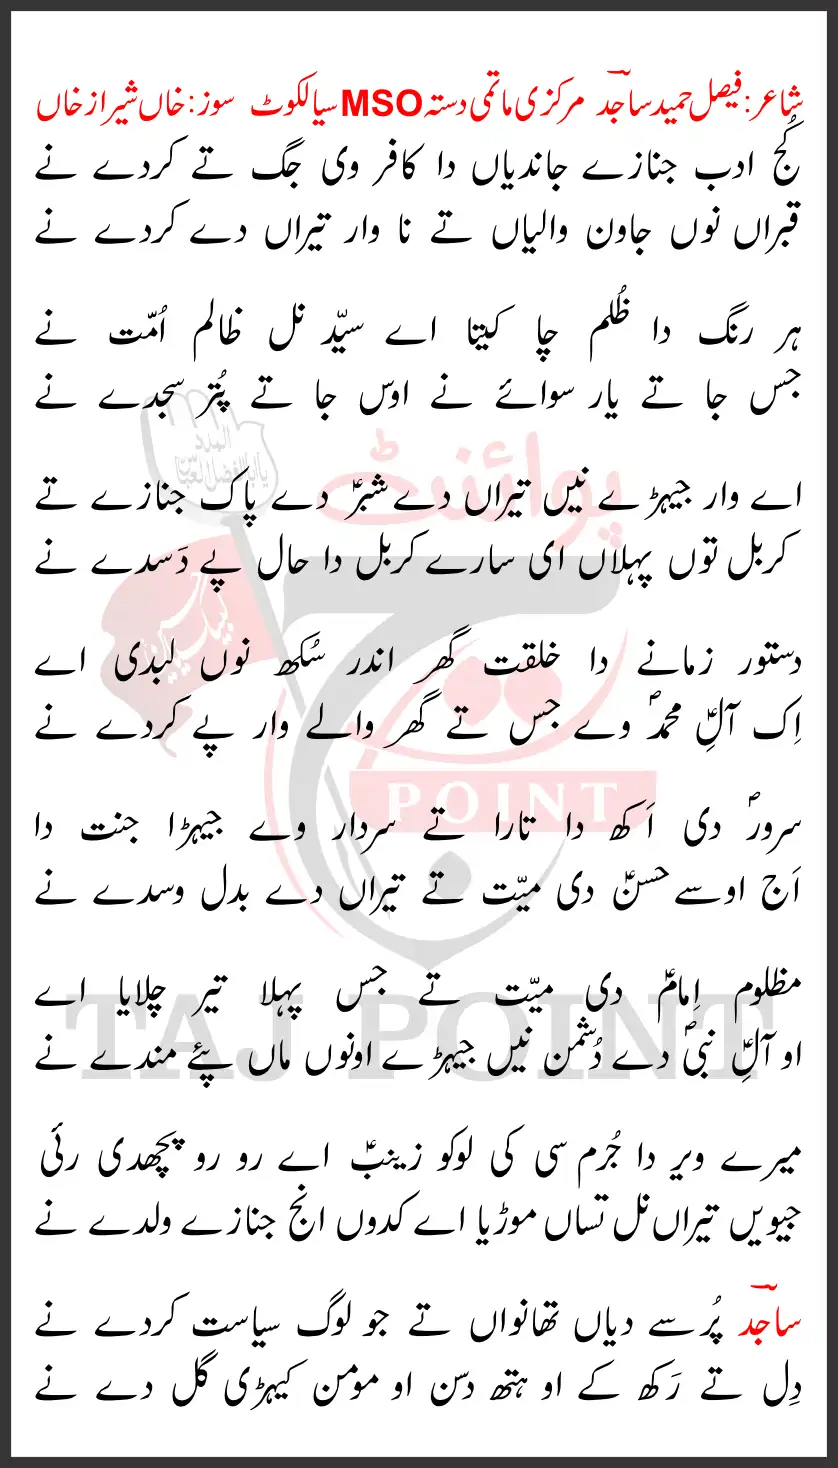 شاعر: فیصل حمید ساجدؔ مرکزی ماتمی دستہ MSO سیالکوٹ سوز: خاں شیراز خاں
کُج ادب جنازے جاندیاں دا کافر وی جگ تے کردے نے
قبراں نوں جاون والیاں تے نا وار تیراں دے کردے نے
ہر رنگ دا ظُلم چا کیتا اے سیّد نل ظالم اُمّت نے
جس جا تے یار سوائے نے اوس جا تے پُتر سجدے نے
اے وار جیہڑے نیں تیراں دے شبرؑ دے پاک جنازے تے
کربل توں پہلاں ای سارے کربل دا حال پے دَسدے نے
دستور زمانے دا خلقت گھر اندر سُکھ نوں لبدی اے
اِک آلِؑ محمدؐ وے جس تے گھر والے وار پے کردے نے
سرورؐ دی اَکھ دا تارا تے سردار وے جیہڑا جنت دا
اَج اوسے حسنؑ دی میّت تے تیراں دے بدل وسدے نے
مظلوم اِمامؑ دی میّت تے جس پہلا تیر چلایا اے
او آلِؑ نبیؐ دے دُشمن نیں جیہڑے اونوں ماں پئے مندے نے
میرے ویر دا جُرم سی کی لوکو زینبؑ اے رو رو پچھدی رئی
جیویں تیراں نل تساں موڑیا اے کدوں انج جنازے ولدے نے
ساجدؔ پُرسے دیاں تھانواں تے جو لوگ سیاست کردے نے
دِل تے رَکھ کے او ہتھ دسن او مومن کیہڑی گل دے نے
المدد
یا ابالفضل العباسؑ
لبیک یا حسینؑ
پوائنٹ
تاج
POINT
TAJ POINT